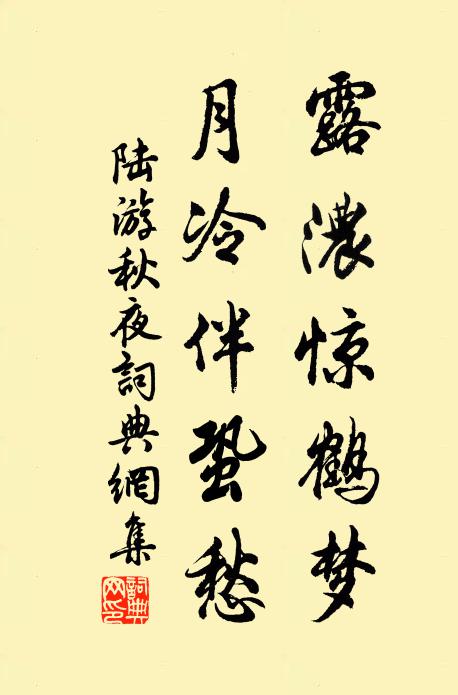 露濃惊鹤梦
月冷伴蛩愁
陆游秋夜詞典網集
詞典网印